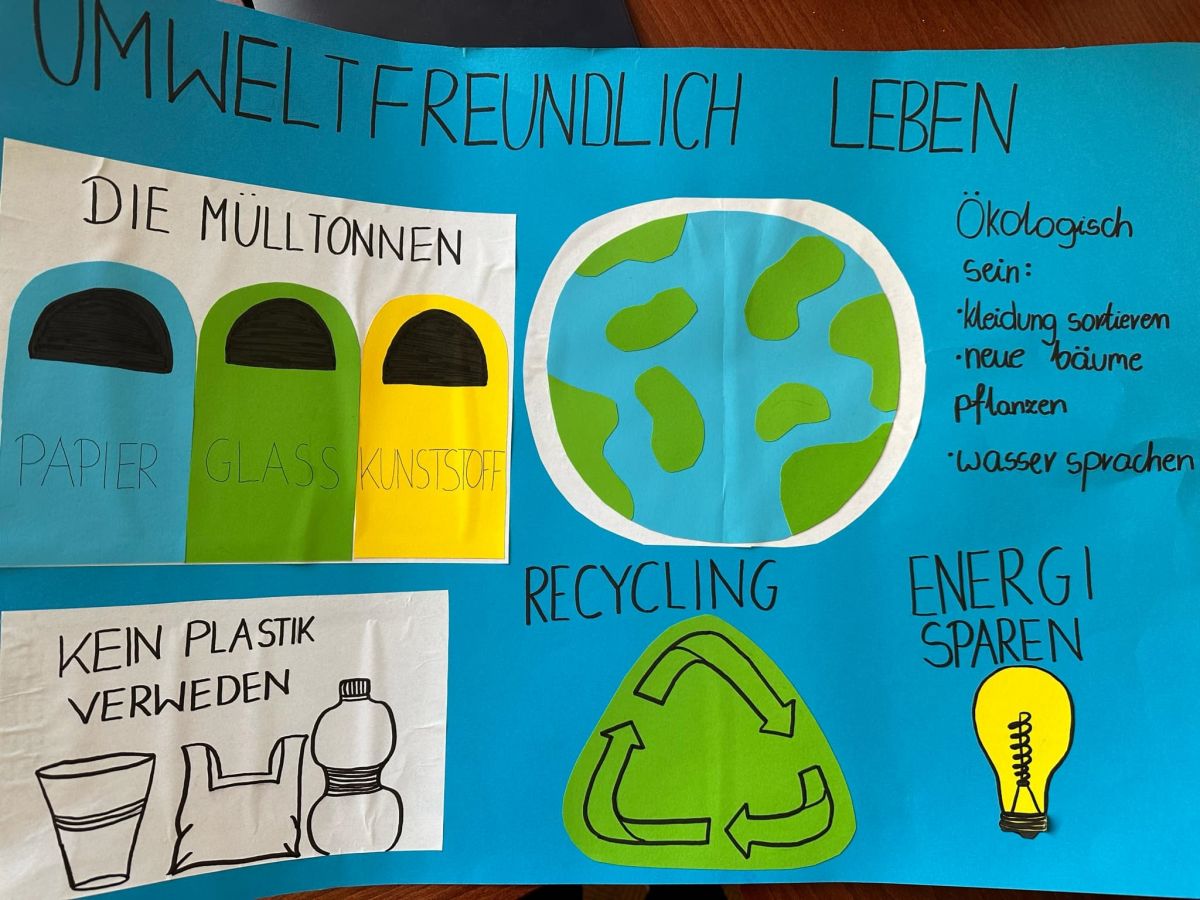 UMWELTFREUNDLICH LEBEN
DIE MÜLLTONNEN
PAPIER GLASS KUNSTSTOFF
Ökologisch
sein:
·kleidung sortieren
·neue bäume
pflanzen
·wasser sprachen
KEIN PLASTIK
VERWEDEN
RECYCLING
ENERGI
SPAREN